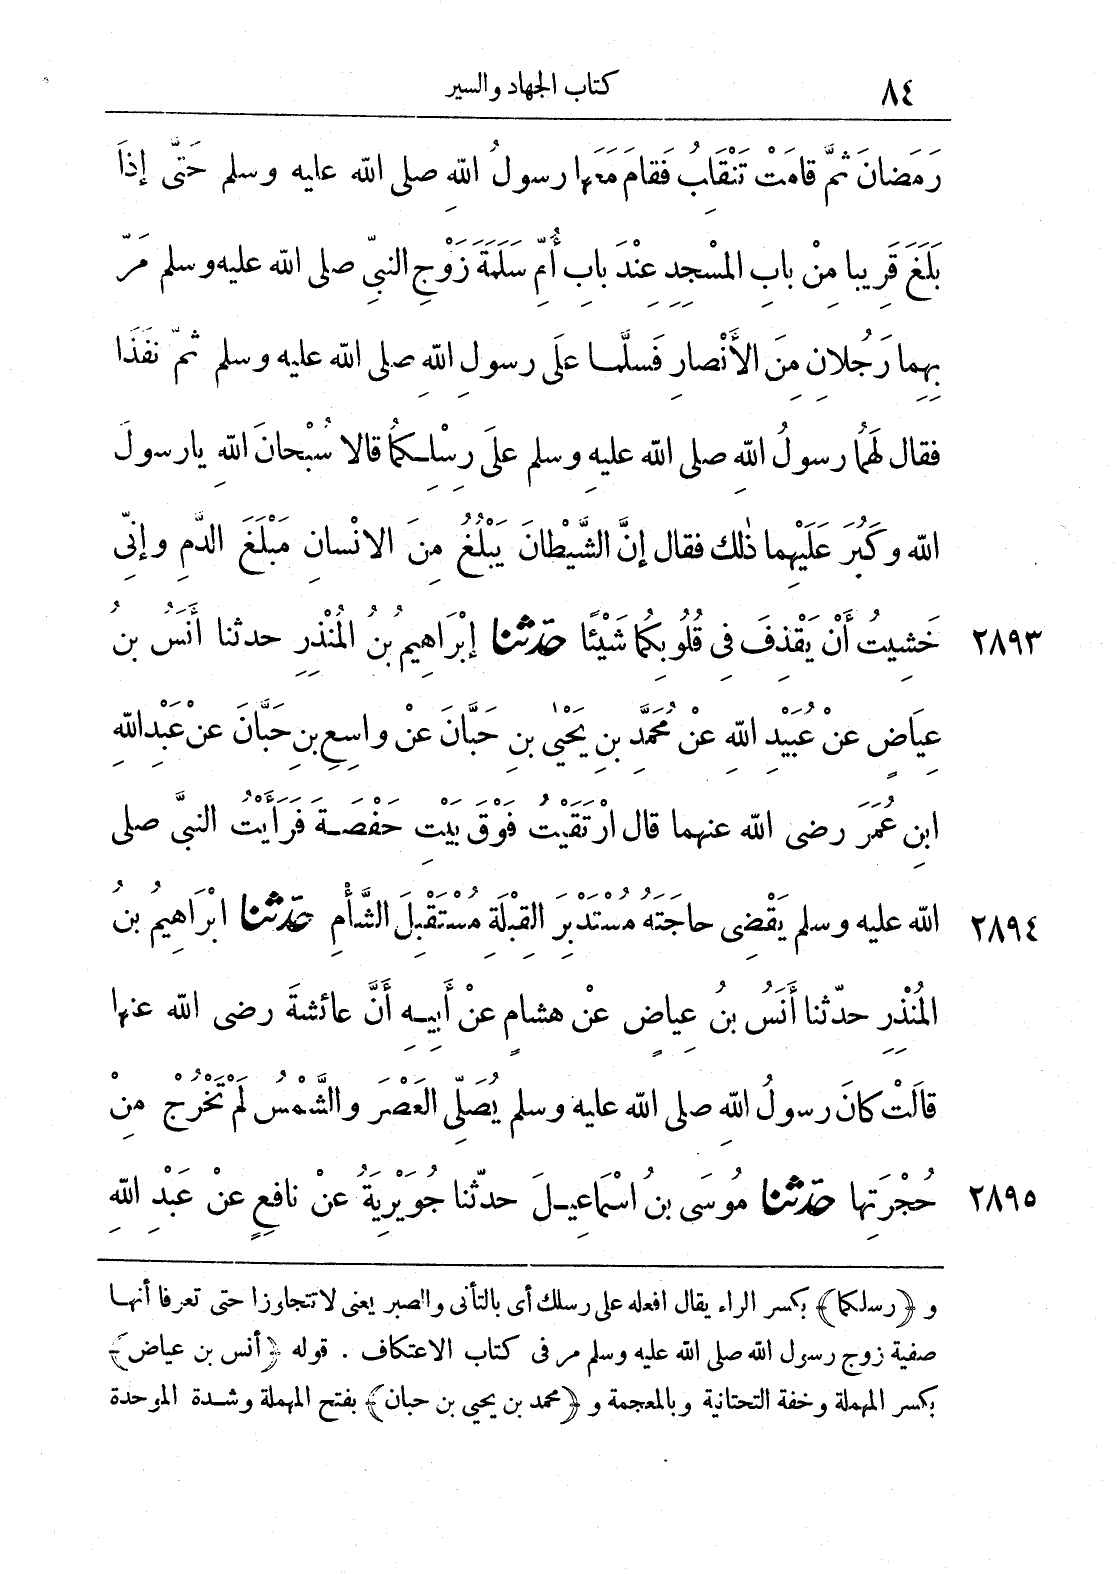 ٨٤ كتاب الجهاد والسير
رَمَضانَ ثمَّ قامَتْ تَنْقَلِبُ فَقامَ مَعَها رسولُ اللهِ صلى الله عليه وسلم حَتَّى إذَا
بَلَغَ قَرِيبا مِنْ بابِ المَسْجِدِ عِنْدَ بابِ أُمِّ سَلَمَةَ زَوْجِ النبىِّ صلى الله عليه وسلم مَرَّ
بِهِما رَجُلانِ مِنَ الأَنْصارِ فَسلَّما علَى رسولِ اللهِ صلى الله عليه وسلم ثمّ نفَذَا
فقال لَهُما رسولُ اللهِ صلى الله عليهِ وسلم علَى رِسْلِكُما قالا سُبْحانَ اللهِ يارسولَ
الله وكَبُرَ عَلَيْهِما ذٰلك فقال إنَّ الشَّيْطانَ يَبْلُغُ مِنَ الانْسانِ مَبْلَغَ الدَّمِ وإنِّى
٢٨٩٣ خَشِيتُ أَنْ يَقْذِفَ فى قُلُوبِكُما شَيْئًا حدّثنا إبْرَاهِيمُ بنُ المُنْذِرِ حدثنا أنَسُ بنُ
عِيَاضٍ عنْ عُبَيْدِ اللهِ عنْ مُحَمَّدِ بنِ يَحْيٰى بنِ حَبَّانَ عنْ واسِعِ بنِ حَبَّانَ عنْ عَبْدِ اللهِ
ابنِ عُمَرَ رضى الله عنهما قال ارْتَقَيْتُ فَوْقَ بَيْتِ حَفْصَةَ فَرَأَيْتُ النبىَّ صلى
٢٨٩٤ الله عليه وسلم يَقْضِى حاجَتَهُ مُسْتَدْبِرَ القِبْلَةِ مُسْتَقْبِلَ الشَّأْمِ حدّثنا ابْرَاهِيمُ بنُ
المُنْذِرِ حدّثنا أنَسُ بنُ عِياضٍ عنْ هشامٍ عنْ أَبِيهِ أَنَّ عائشةَ رضى الله عنها
قالَتْ كانَ رسولُ اللهِ صلى الله عليه وسلم يُصَلِّى العَصْرَ والشَّمْسُ لَمْ تَخْرُجْ مِنْ
٢٨٩٥ حُجْرَتِها حدّثنا مُوسَى بنُ اسْمَاعِيلَ حدثّنا جُوَيْرِيَةُ عنْ نافِعٍ عنْ عَبْدِ اللهِ
و ﴿رسلكما﴾ بكسر الراء يقال افعله على رسلك أى بالتأنى والصبر يعنى لاتتجاوزا حتى تعرفا أنها
صفية زوج رسول الله صلى الله عليه وسلم مر فى كتاب الاعتكاف . قوله ﴿أنس بن عياض﴾
بكسر المهملة وخفة التحتانية وبالمعجمة و ﴿محمد بن يحيى بن حبان﴾ بفتح المهملة وشدة الموحدة